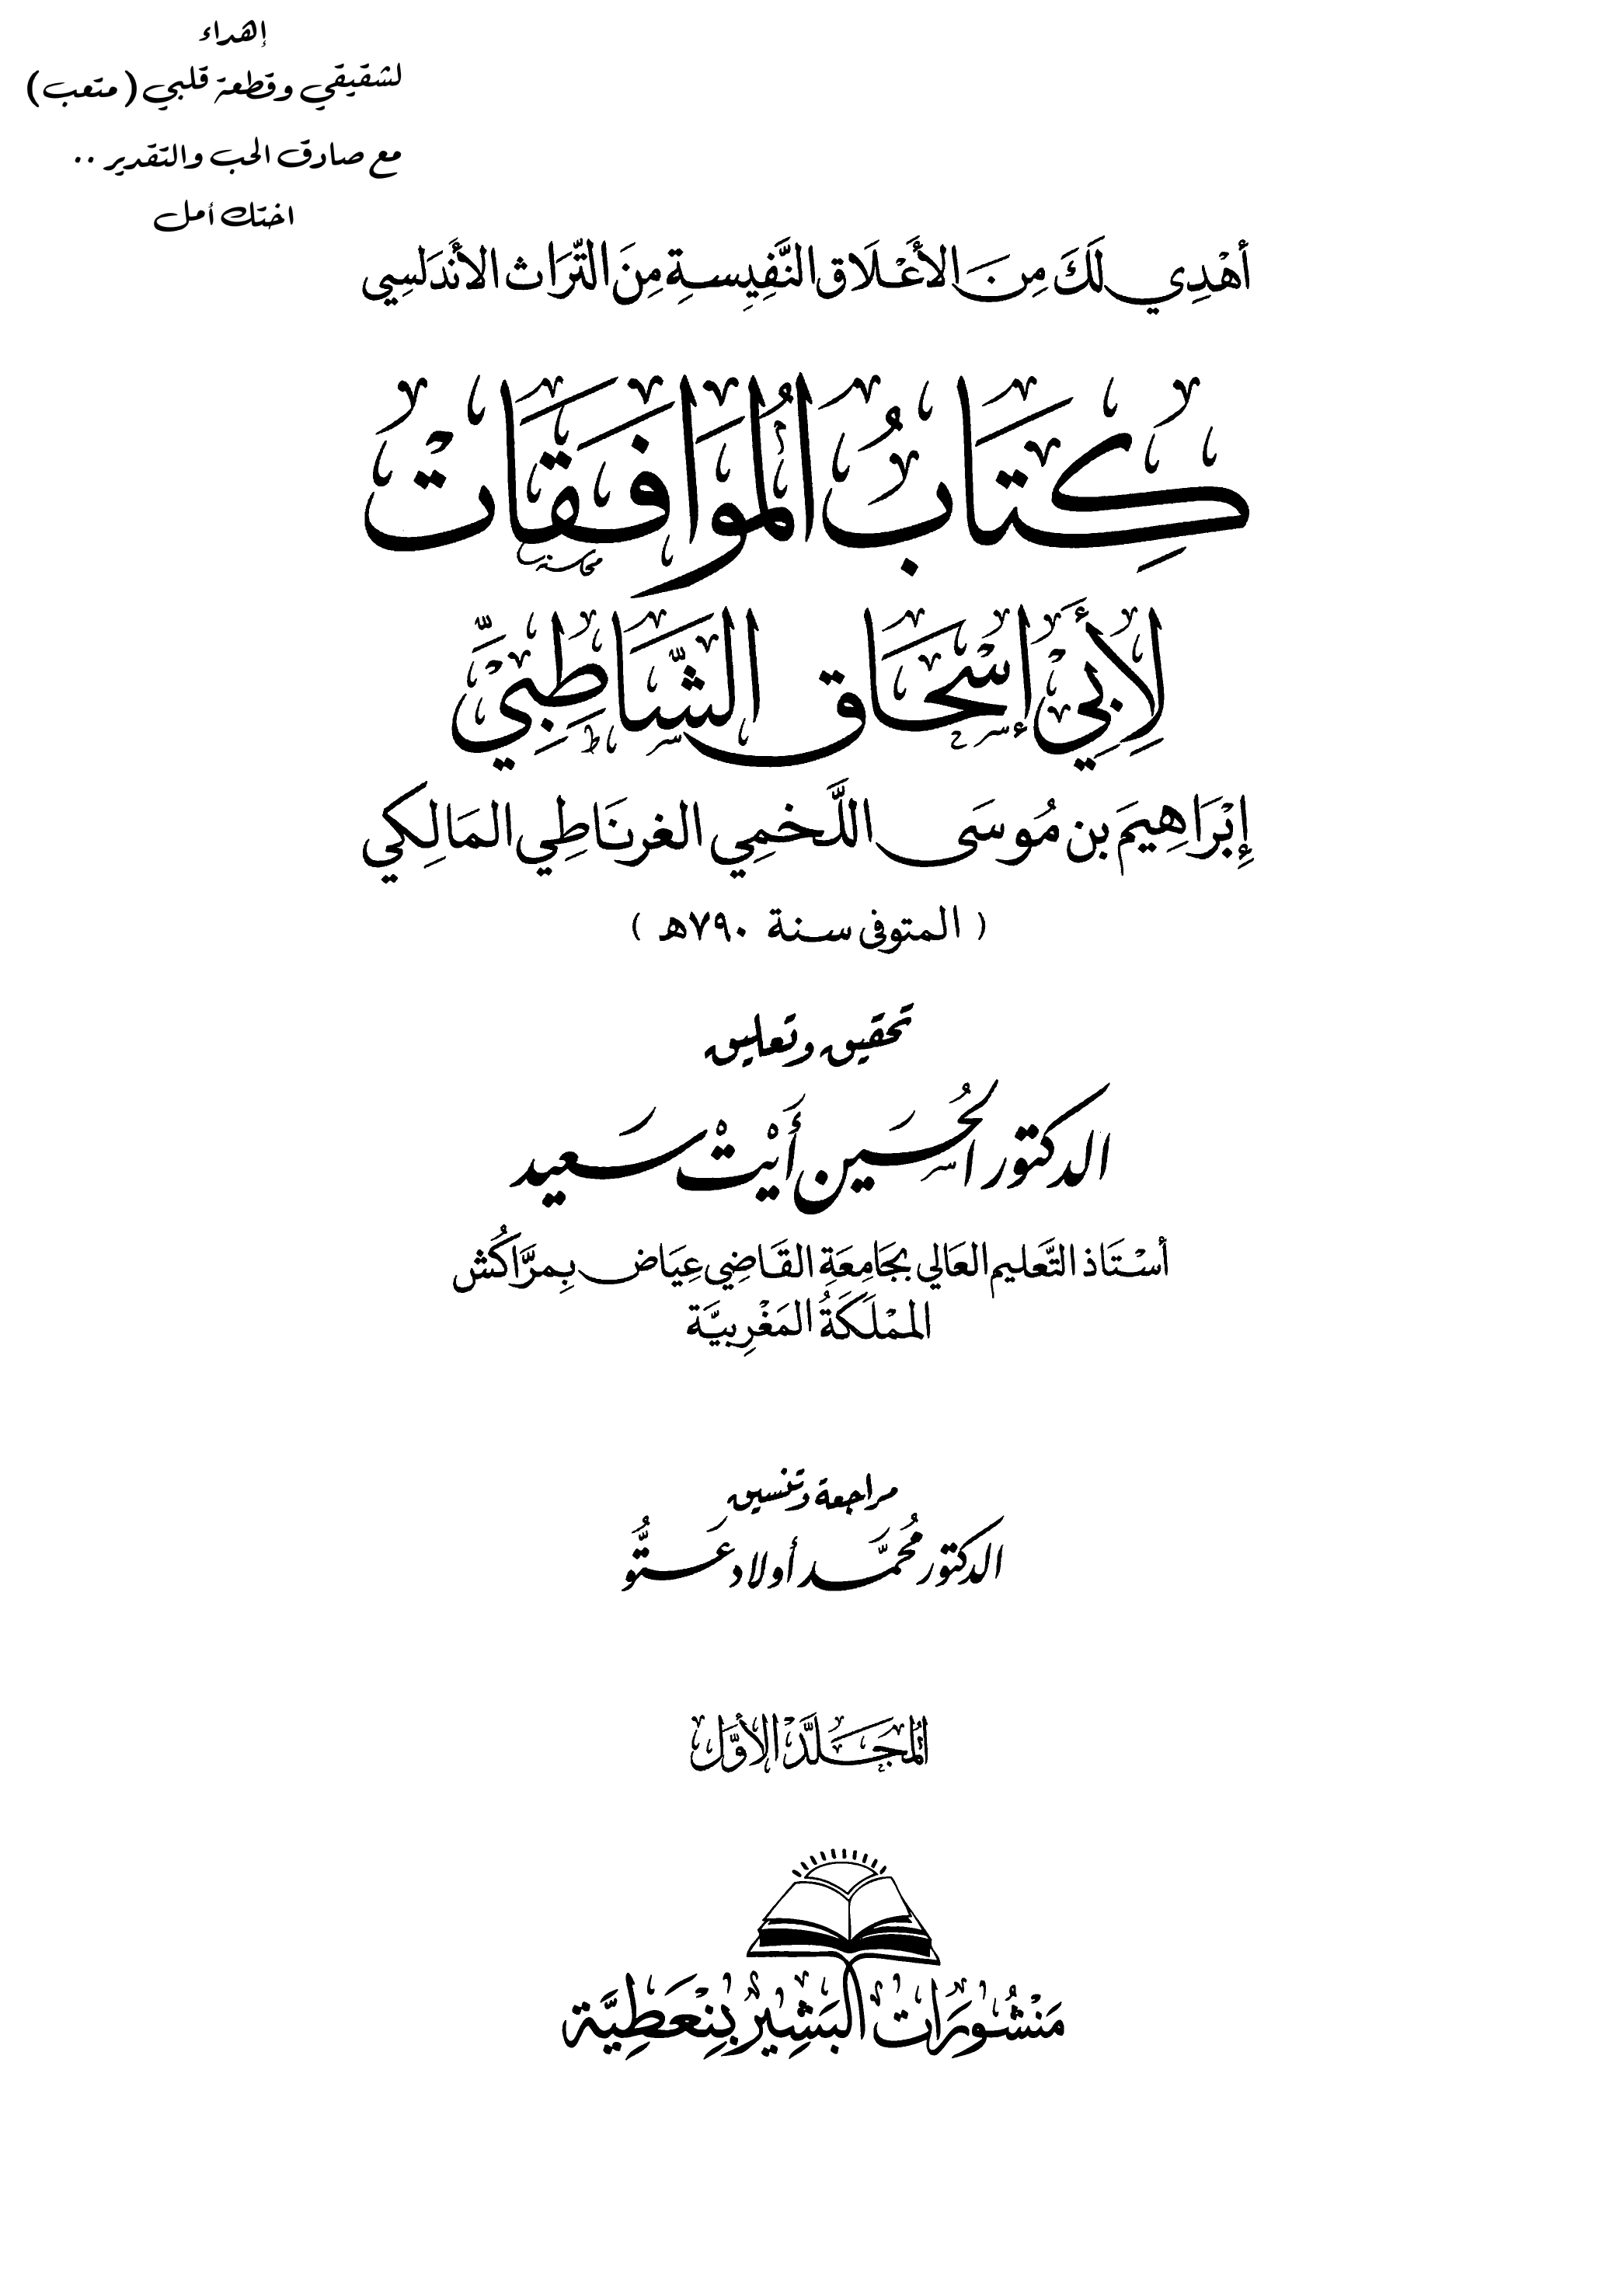 إهداء
لشقيقي وقطعة قلبي (متعب)
مع صادق الحب والتقدير ..
اختك أمل
أهْدِي لَكَ مِنَ الأَعْلَاق النَّفِيسةِ مِنَ التّرَاث الأَندَلسِي
كِتَابُ المُوَافَقَات
لِأَبِي إسْحَاق الشَّاطِبِيّ
إِبْرَاهِيمَ بن مُوسَى اللَّخمِي الغرنَاطِي المَالِكي
( المتوفى سنة ٧٩٠هـ )
تحقيق وتعليق
الدكتور الحُسَين أَيْتْ سَعيد
أسْتَاذ التَّعليم العَالي بجَامِعَةِ القَاضِي عِيَاض بِمرَّاكُش
المَمْلَكَةُ المَغْرِبيَّة
مراجعة وتنسيق
الدكتور مُحمَّد أولاد عَتُّو
المُجَلَّدْ الأوَّل
مَنْشُورَات البَشِيرْ بِنِعَطِيَّة